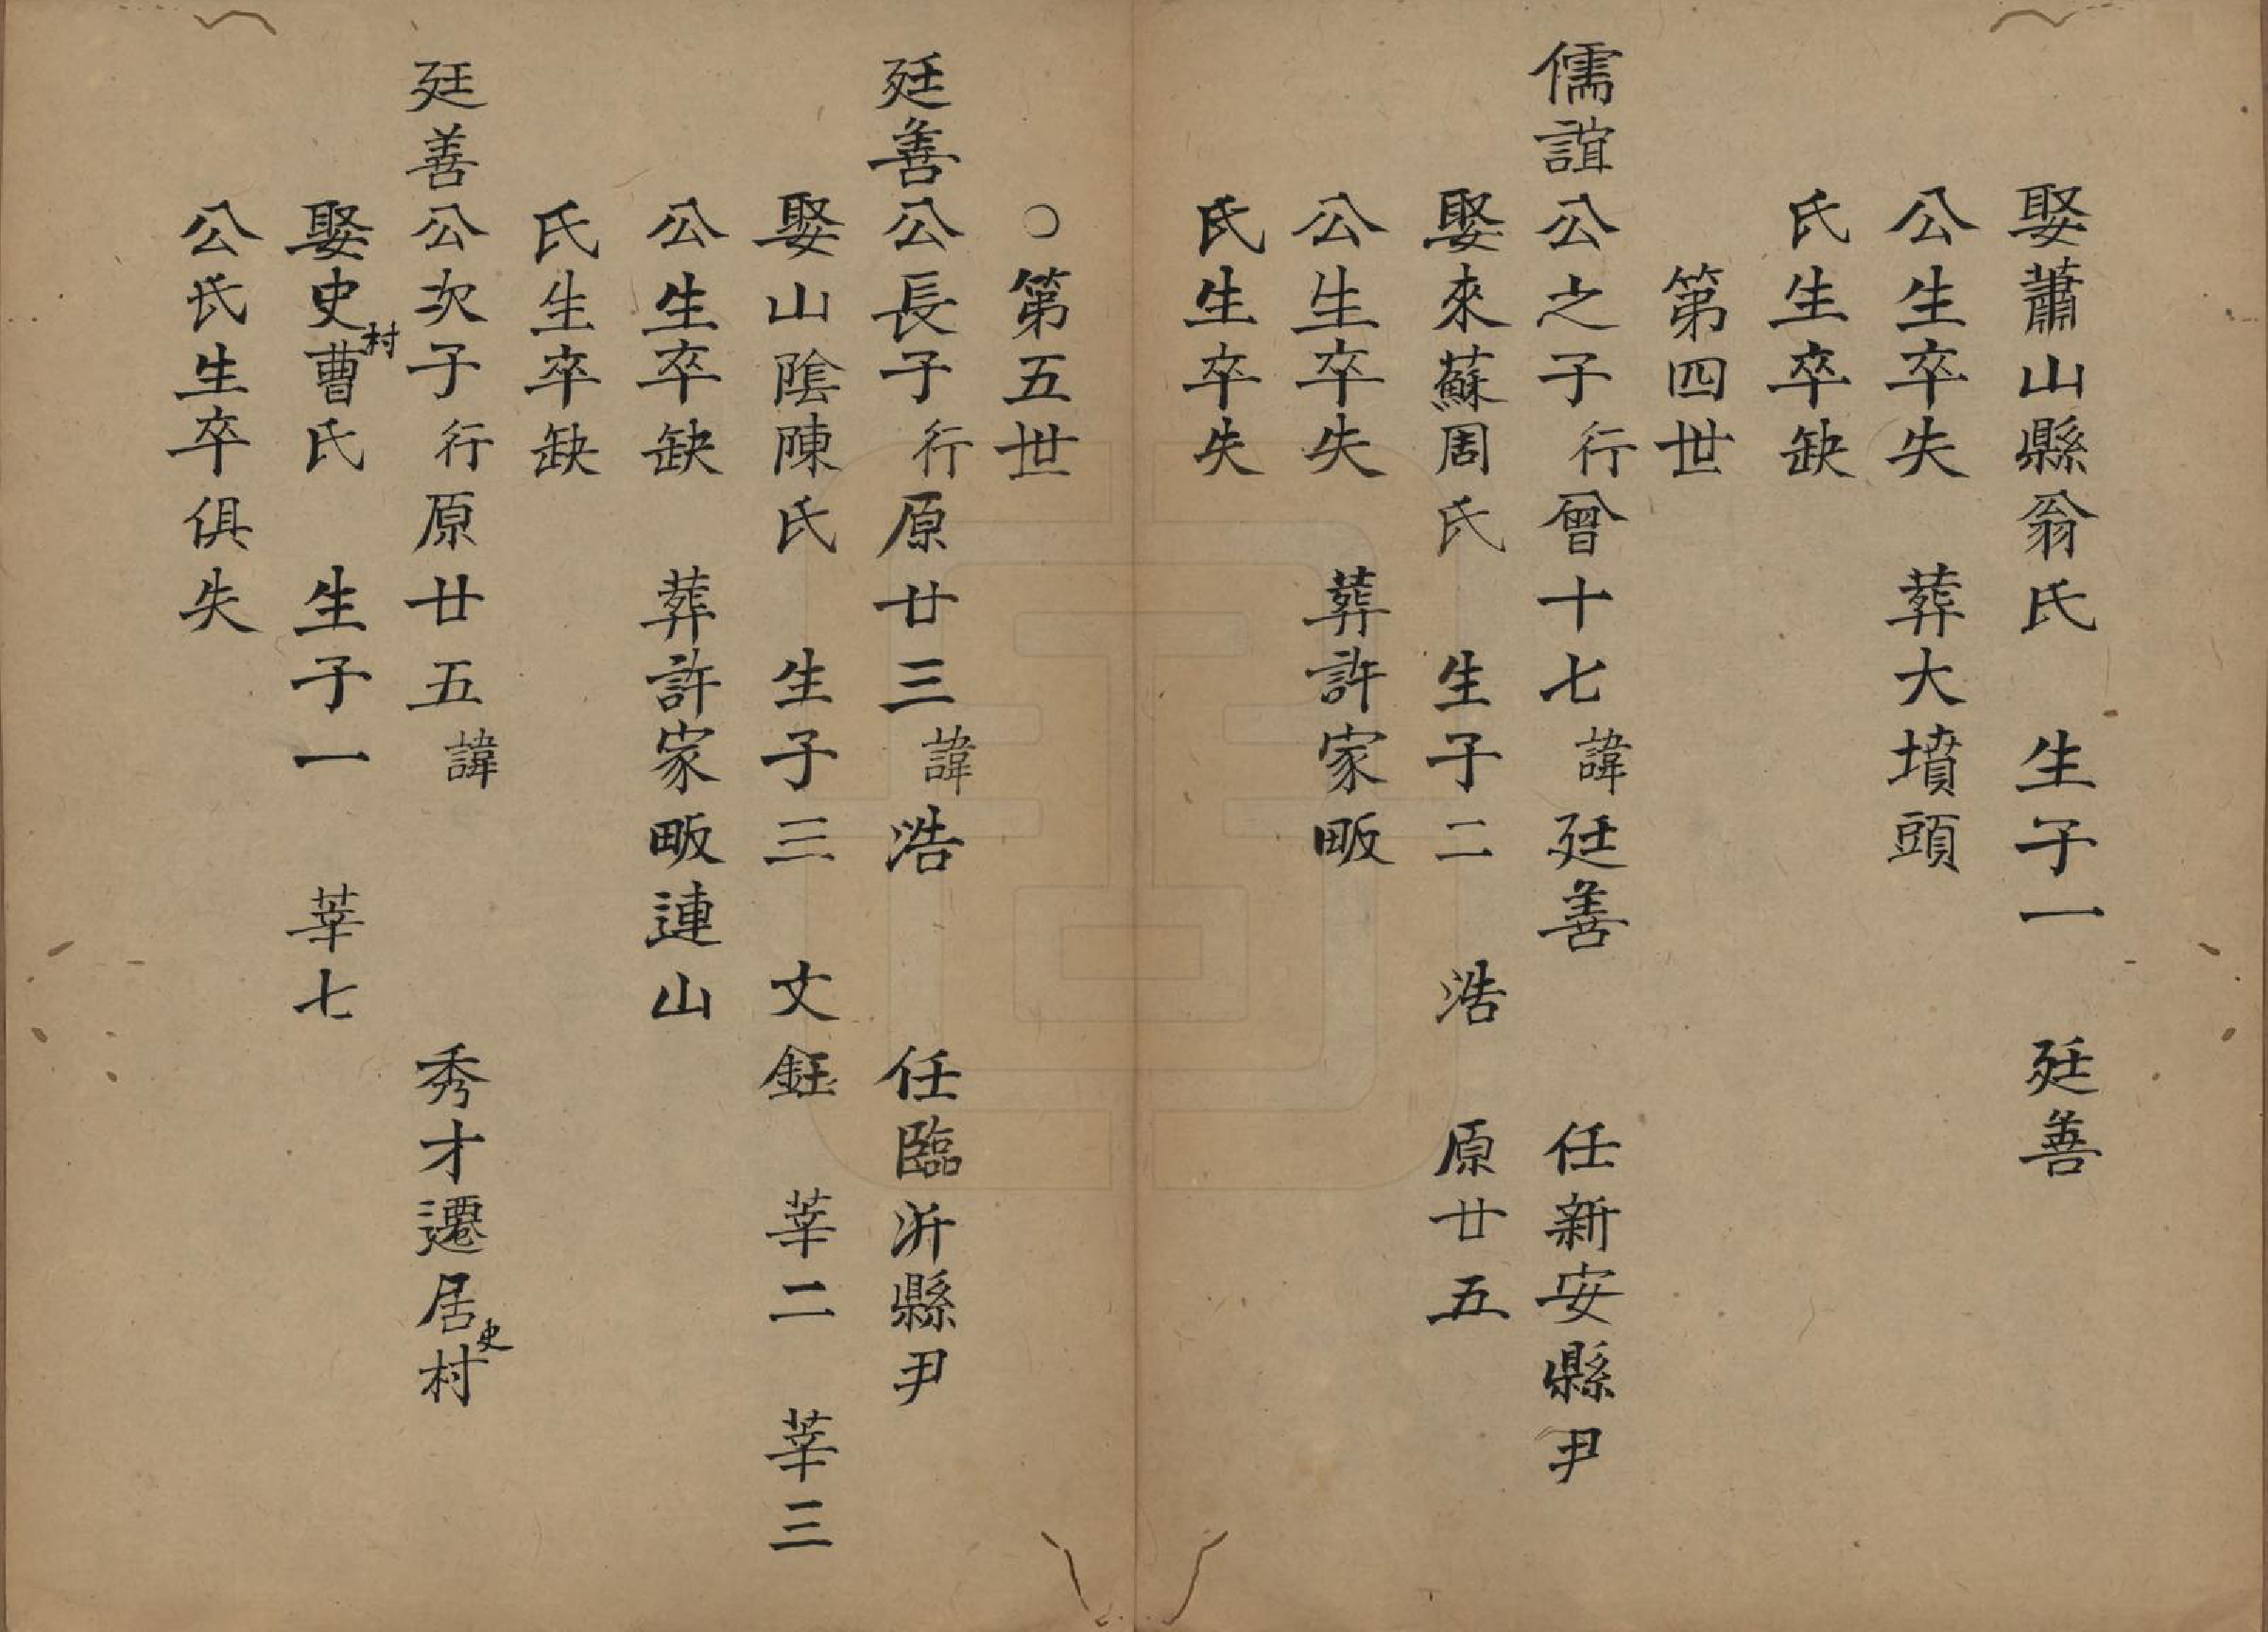 娶蕭山縣翁氏　生子一　廷善
公生卒失　葬大墳頭
氏生卒缺
第四世
儒誼公之子行曾十七諱廷善　任新安縣尹
娶來蘇周氏　生子二　浩　原廿五
公生卒失　葬許家畈
氏生卒失
○第五世
廷善公長子行原廿三諱浩　任臨沂縣尹
娶山陰陳氏　生子三　文鈺　莘二　莘三
公生卒缺　葬許家畈連山
氏生卒缺
廷善公次子行原廿五諱　秀才遷居史村
娶史村曹氏　生子一　莘七
公氏生卒俱失